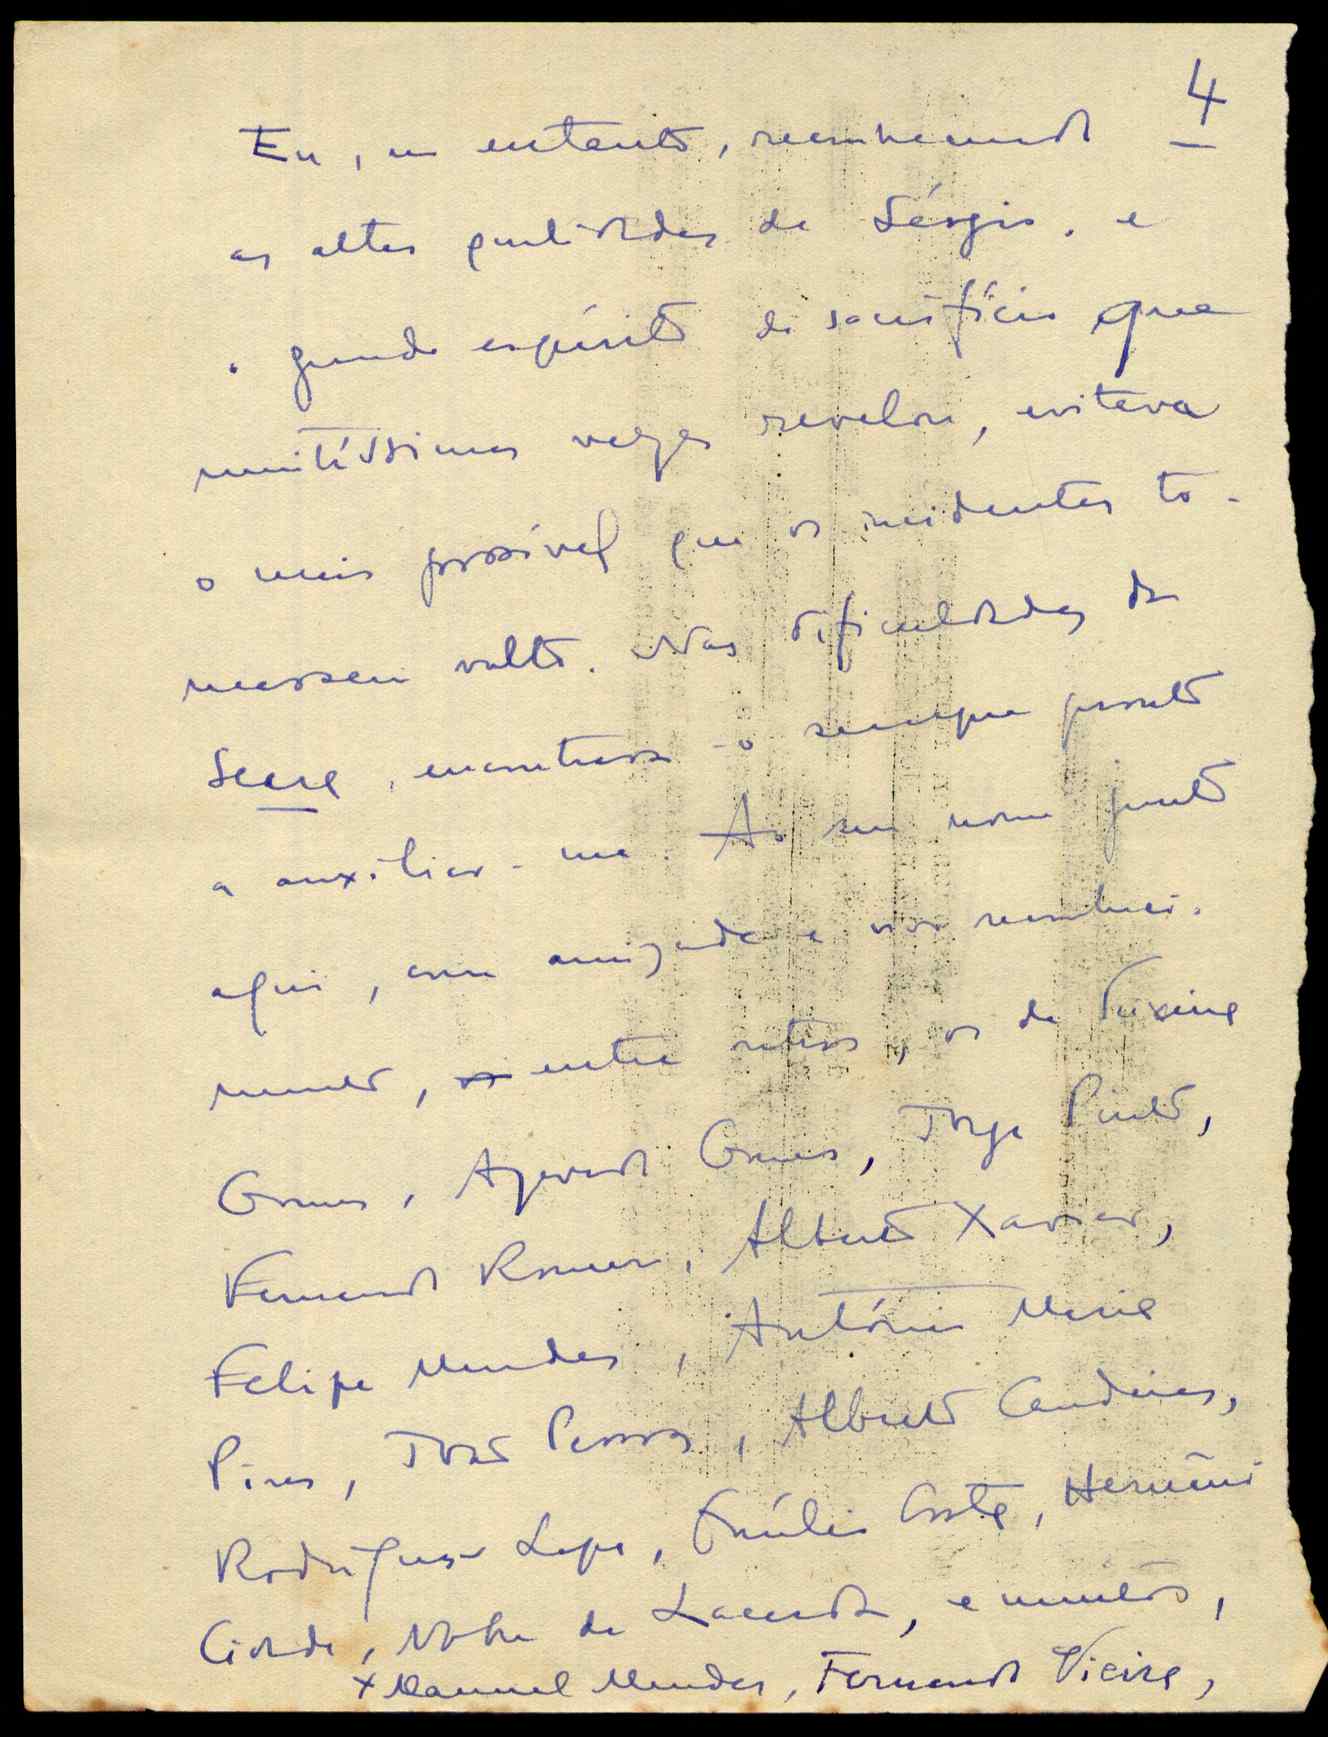 4
Eu, no entanto, reconhecendo
as altas qualidades de Sérgio, e
o grande espírito de sacrifício que
muitíssimas vezes revelou, evitava
o mais possível que os incidentes to-
massem vulto. Nas dificuldades da
Seara, encontrava-o sempre pronto
a auxiliar-me. Ao seu nome junto
aqui, com amizade e vivo reconheci-
mento, entre outros, os de Teixeira
Gomes, Azevedo Gomes, Jorge Pinto,
Fernando Romero, Alberto Xavier,
Felipe Mendes, António Maria
Pires, João Pessoa, Alberto Candeias,
Rodrigues Lapa, Emílio Costa, Hernâni
Cidade, Nobre de Lacerda, e muitos,
x Manuel Mendes, Fernando Vieira,